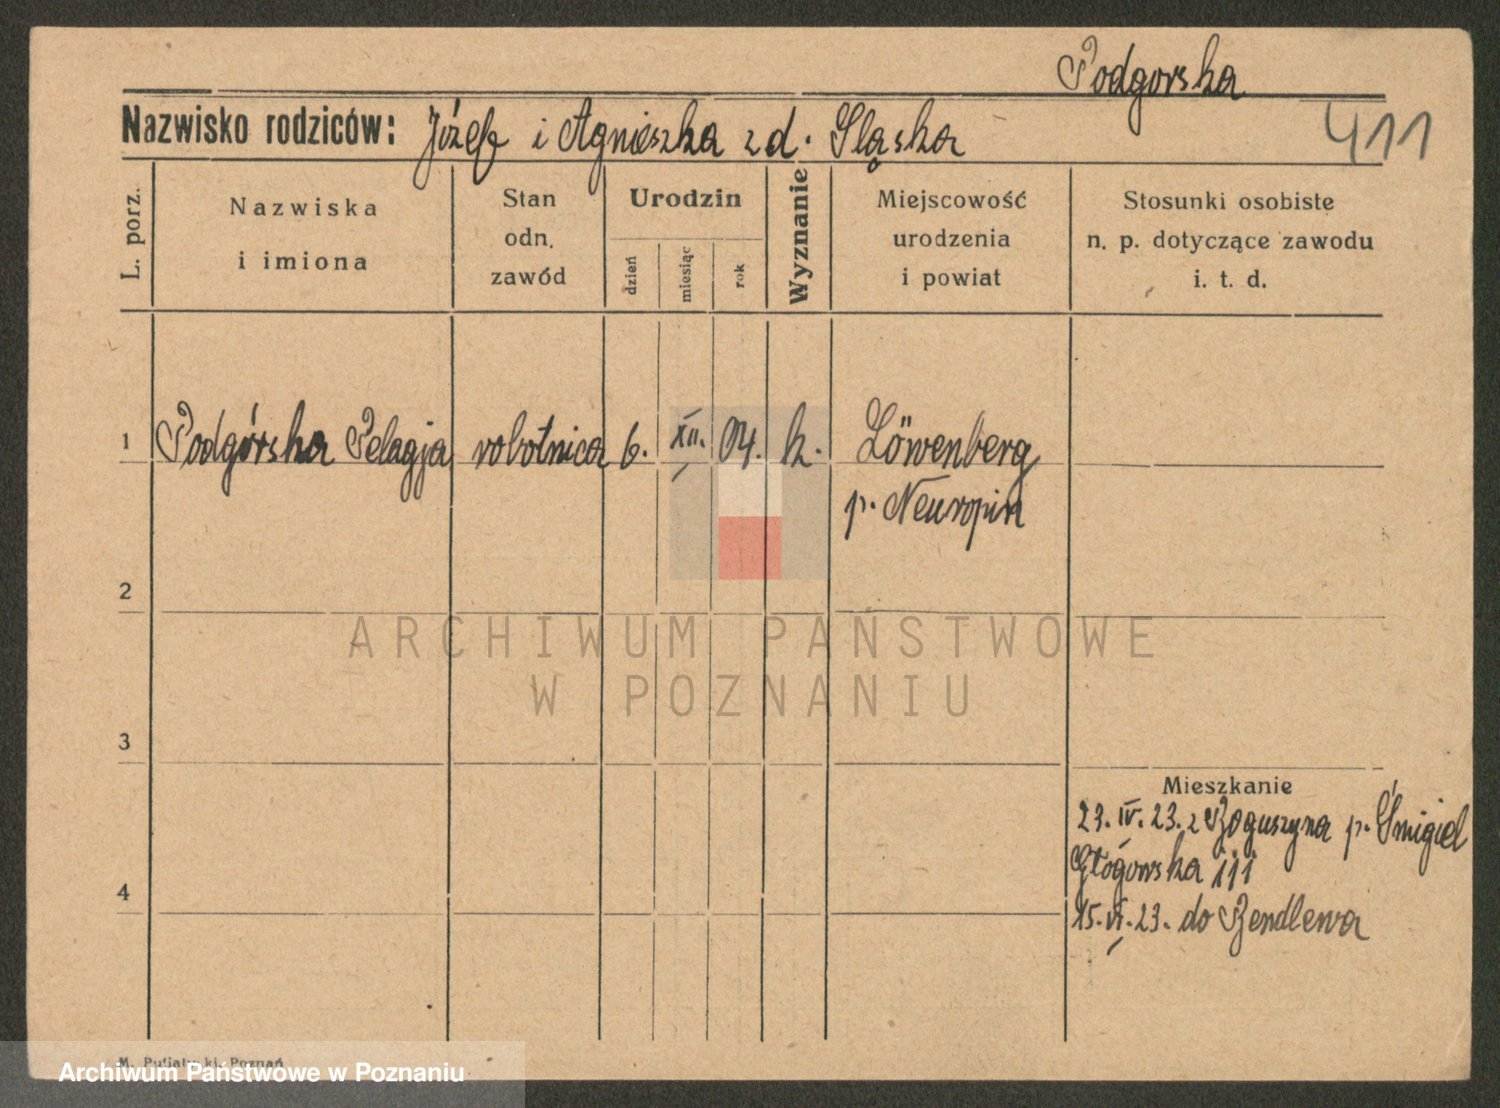 Podgorska
Nazwisko rodziców: Józef i Agnieszka z d. Sląska
411
L. porz.
Nazwiska
i imiona
Stan
odn.
zawód
Urodzin
dzień
miesiąc
rok
Wyznanie
Miejscowość
urodzenia
i powiat
Stosunki osobiste
n. p. dotyczące zawodu
i. t. d.
1 Podgórska Pelagja robotnica 6. XII. 04. k. Löwenberg
p. Neuropin
2
3
4
Mieszkanie
23. IV. 23. z Boguszyna p. Śmigiel
Głogowska 111
15. VI. 23. do Bendlewa
ARCHIWUM PAŃSTWOWE
W POZNANIU
M. Poznań
Archiwum Państwowe w Poznaniu